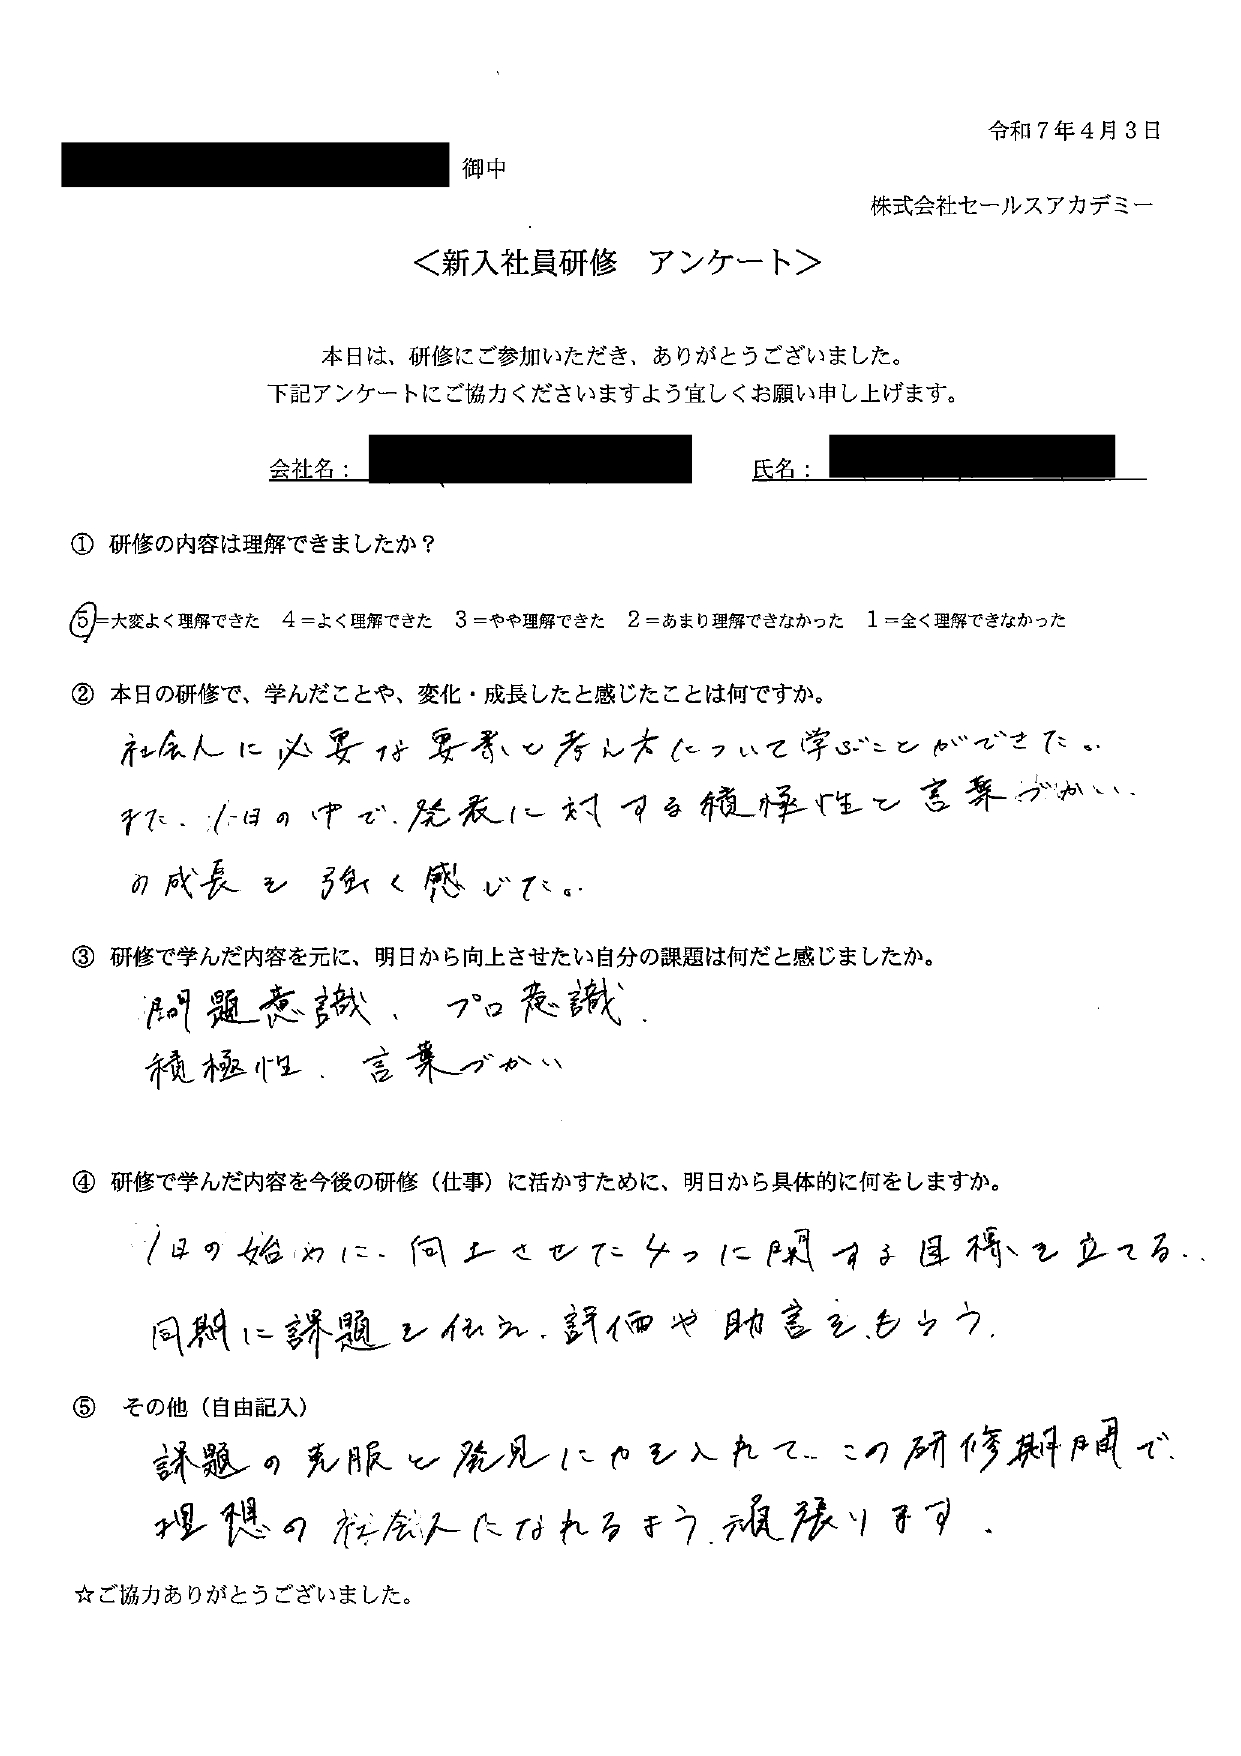 令和７年４月３日
御中
株式会社セールスアカデミー
＜新入社員研修　アンケート＞
本日は、研修にご参加いただき、ありがとうございました。
下記アンケートにご協力くださいますよう宜しくお願い申し上げます。
会社名：　氏名：
① 研修の内容は理解できましたか？
5＝大変よく理解できた　4＝よく理解できた　3＝やや理解できた　2＝あまり理解できなかった　1＝全く理解できなかった
② 本日の研修で、学んだことや、変化・成長したと感じたことは何ですか。
社会人に必要な要素と考え方について学ぶことができた。
また、1日の中で、発表に対する積極性と言葉づかい
の成長を強く感じた。
③ 研修で学んだ内容を元に、明日から向上させたい自分の課題は何だと感じましたか。
問題意識、プロ意識、
積極性、言葉づかい
④ 研修で学んだ内容を今後の研修（仕事）に活かすために、明日から具体的に何をしますか。
1日の始めに、向上させた4つに関する目標を立てる。
同期に課題を伝え、評価や助言をもらう。
⑤　その他（自由記入）
課題の克服と発見に力を入れて、この研修期間で、
理想の社会人になれるよう、頑張ります。
☆ご協力ありがとうございました。